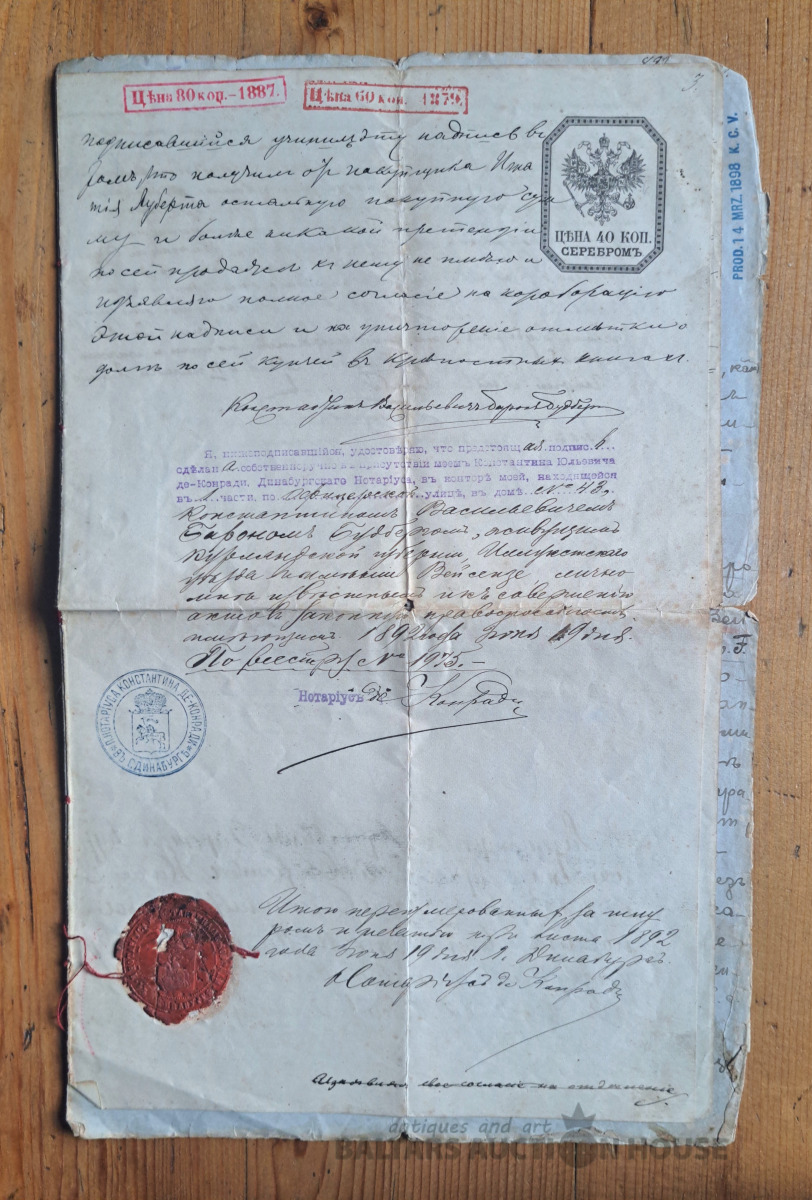 Цѣна 80 коп.-1887.
Цѣна 60 коп. 1879.
3.
подписавшійся учинилъ эту надпись въ
томъ, что получилъ отъ покупщика Игна
тія Луберта остальную покупную сум
му и болѣе никакой претензіи
по сей продажѣ къ нему не имѣю и
изъявляю полное согласіе на корроборацію
этой надписи и на уничтоженіе отмѣтки о
долгѣ по сей купчей въ крѣпостныхъ книгахъ.
ЦѢНА 40 КОП.
СЕРЕБРОМЪ
PROD. 14 MRZ. 1898 K. C. V.
Константинъ Васильевичъ Баронъ Будбергъ
Я, нижеподписавшійся, удостовѣряю, что предстоящая подпись
сдѣлана собственноручно въ присутствіи моемъ Константина Юльевича
де-Конради, Динабургскаго Нотаріуса, въ конторѣ моей, находящейся
въ 1 части, по Офицерской улицѣ, въ домѣ № 48,
Константиномъ Васильевичемъ
Барономъ Будбергомъ, живущимъ
Курляндской губерніи, Иллукстскаго
уѣзда въ имѣніи Вейсензе, лично
мнѣ извѣстнымъ и къ совершенію
актовъ законную правоспособность
имѣющимъ 1892 года Іюня 19 дня.
По реестру № 1975.-
Нотаріусъ де Конради
НОТАРІУСА КОНСТАНТИНА ДЕ-КОНРАДИ
ВЪ Г. ДИНАБУРГѢ
Итого перенумерованныхъ за шну
ромъ и печатью три листа 1892
года Іюня 19 дня г. Динабургъ.
Нотаріусъ де Конради
изъявляю свое согласіе на отдѣленіе
antiques and art
BALTARS AUCTION HOUSE